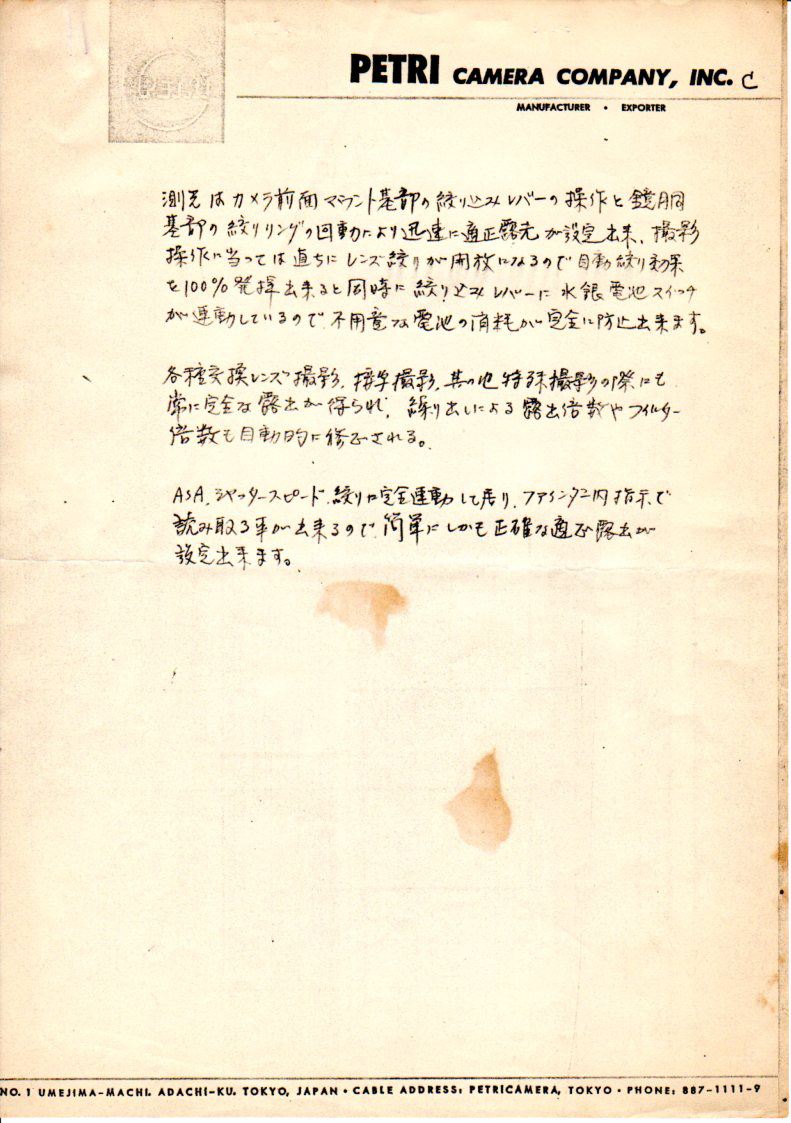 PETRI
PETRI CAMERA COMPANY, INC. C
MANUFACTURER • EXPORTER
測光はカメラ前面マウント基部の絞り込みレバーの操作と鏡胴
基部の絞りリングの回動により迅速に適正露光が設定出来、撮影
操作に当っては直ちにレンズ絞りが開放になるので自動絞り効果
を100%発揮出来ると同時に絞り込みレバーに水銀電池スイッチ
が連動しているので不用意な電池の消耗が完全に防止出来ます。
各種交換レンズ撮影、接写撮影、其の他特殊撮影の際にも
常に完全な露出が得られ、繰り出しによる露出倍数やフィルター
倍数も自動的に修正される。
ASA、シャッタースピード、絞りは完全連動して居り、ファインダー内指示で
読み取る事が出来るので簡単にしかも正確な適正露出が
設定出来ます。
NO. 1 UMEJIMA-MACHI. ADACHI-KU. TOKYO, JAPAN • CABLE ADDRESS: PETRICAMERA, TOKYO • PHONE: 887-1111-9